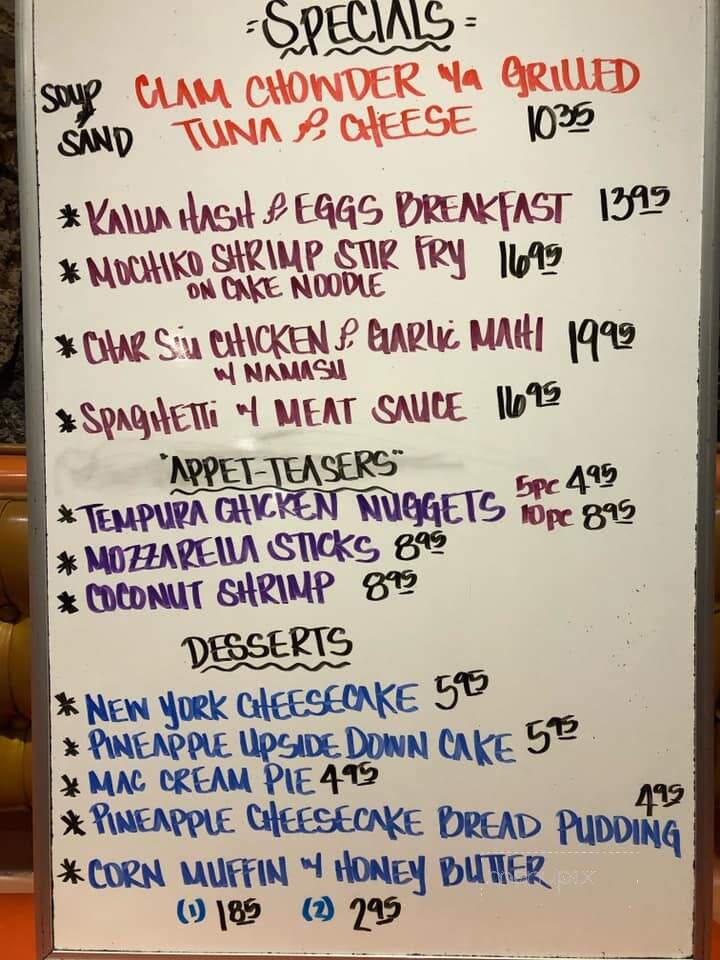 =SPECIALS=
SOUP & SAND CLAM CHOWDER W/a GRILLED
TUNA & CHEESE 10.35
* KALUA HASH & EGGS BREAKFAST 13.95
* MOCHIKO SHRIMP STIR FRY 16.95
ON CAKE NOODLE
* CHAR SIU CHICKEN & GARLIC MAHI 19.95
W/ NAMASU
* SPAGHETTI W/ MEAT SAUCE 16.95
"APPET-TEASERS"
* TEMPURA CHICKEN NUGGETS 5pc 4.95
10pc 8.95
* MOZZARELLA STICKS 8.95
* COCONUT SHRIMP 8.95
DESSERTS
* NEW YORK CHEESECAKE 5.95
* PINEAPPLE UPSIDE DOWN CAKE 5.95
* MAC CREAM PIE 4.95
* PINEAPPLE CHEESECAKE BREAD PUDDING 4.95
* CORN MUFFIN W/ HONEY BUTTER
(1) 1.85 (2) 2.95
menupix